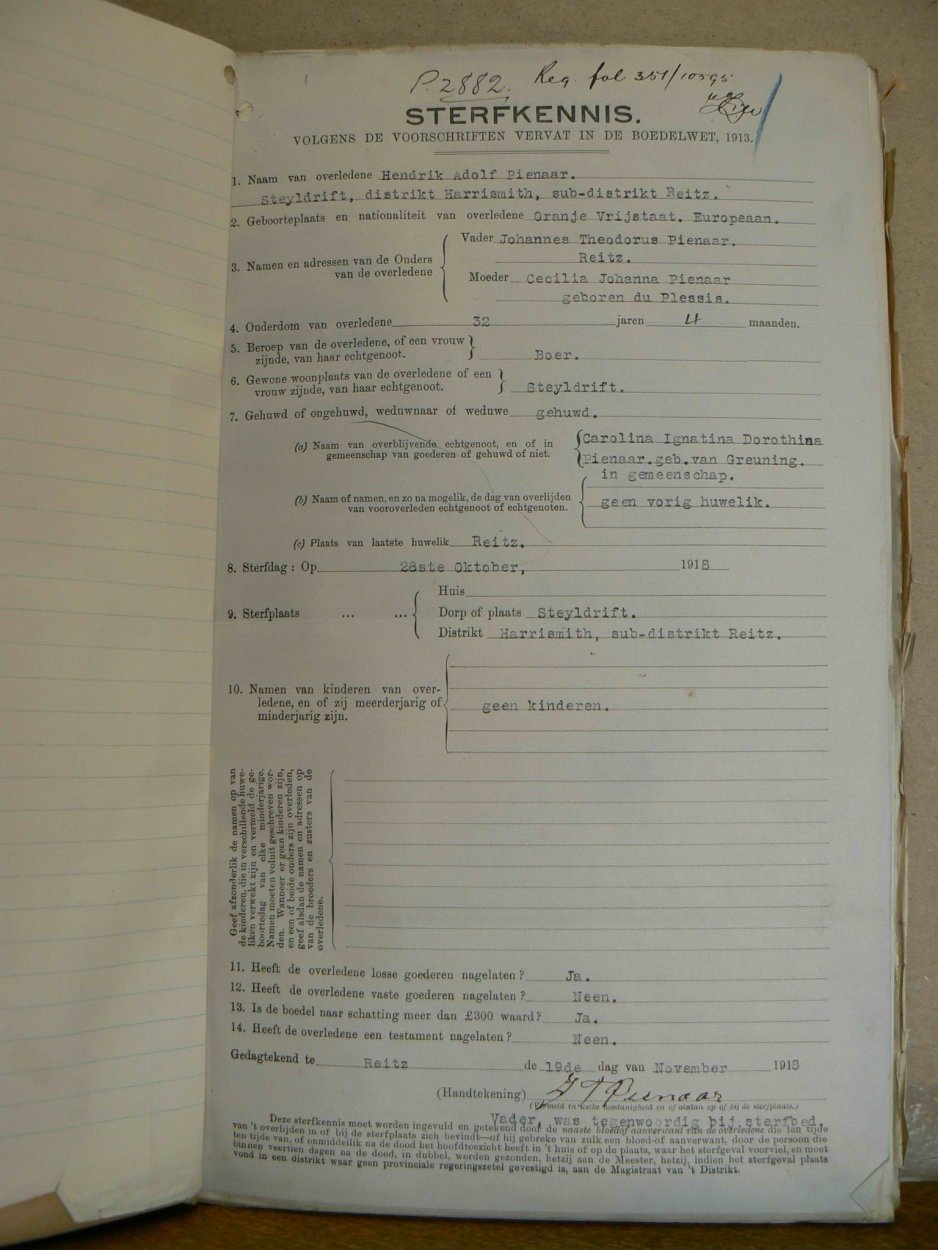 P.2882. Reg. fol 351/10595
STERFKENNIS.
VOLGENS DE VOORSCHRIFTEN VERVAT IN DE BOEDELWET, 1913.
1. Naam van overledene Hendrik Adolf Pienaar.
Steyldrift, distrikt Harrismith, sub-distrikt Reitz.
2. Geboorteplaats en nationaliteit van overledene Oranje Vrijstaat. Europeaan.
3. Namen en adressen van de Ouders van de overledene
Vader Johannes Theodorus Pienaar.
Reitz.
Moeder Cecilia Johanna Pienaar
geboren du Plessis.
4. Onderdom van overledene 32 jaren 4 maanden.
5. Beroep van de overledene, of een vrouw
zijnde, van haar echtgenoot. Boer.
6. Gewone woonplaats van de overledene of een
vrouw zijnde, van haar echtgenoot. Steyldrift.
7. Gehuwd of ongehuwd, weduwnaar of weduwe gehuwd.
(a) Naam van overblijvende echtgenoot, en of in
gemeenschap van goederen of gehuwd of niet.
Carolina Ignatina Dorothina
Pienaar.geb.van Greuning.
in gemeenschap.
(b) Naam of namen, en zo na mogelik, de dag van overlijden
van vooroverleden echtgenoot of echtgenoten.
geen vorig huwelik.
(c) Plaats van laatste huwelik Reitz.
8. Sterfdag: Op 28ste Oktober, 1918
9. Sterfplaats ... ...
Huis
Dorp of plaats Steyldrift.
Distrikt Harrismith, sub-distrikt Reitz.
10. Namen van kinderen van over-
ledene, en of zij meerderjarig of
minderjarig zijn.
geen kinderen.
Geef afzonderlik de namen op van
de kinderen, die in verschillende huwe-
liken verwekt zijn en vermeld de ge-
boortedag van elke minderjarige.
Namen moeten voluit geschreven wor-
den. Wanneer er geen kinderen zijn,
en een of beide ouders zijn overleden,
geef alsdan de namen en adressen op
van de broeders en zusters van de
overledene.
11. Heeft de overledene losse goederen nagelaten? Ja.
12. Heeft de overledene vaste goederen nagelaten? Neen.
13. Is de boedel naar schatting meer dan £300 waard? Ja.
14. Heeft de overledene een testament nagelaten? Neen.
Gedagtekend te Reitz de 19de dag van November 1918
(Handtekening) J T Pienaar
(Vermeld in welke hoedanigheid en of alsdan op of bij de sterfplaats.)
Vader, was tegenwoordig bij sterfbed.
Deze sterfkennis moet worden ingevuld en getekend door de naaste bloed of aanverwant van de overledene die ten tijde
van 't overlijden in of bij de sterfplaats zich bevindt—of bij gebreke van zulk een bloed-of aanverwant, door de persoon die
ten tijde van, of onmiddellik na de dood het hoofdtoezicht heeft in 't huis of op de plaats, waar het sterfgeval voorviel, en moet
binnen veertien dagen na de dood, in dubbel, worden gezonden, hetzij aan de Meester, hetzij, indien het sterfgeval plaats
vond in een distrikt waar geen provinciale regeringszetel gevestigd is, aan de Magistraat van 't Distrikt.